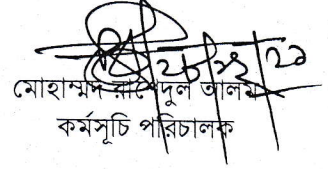 ২৮/২/২১
মোহাম্মদ রাশেদুল আলম
কর্মসূচি পরিচালক